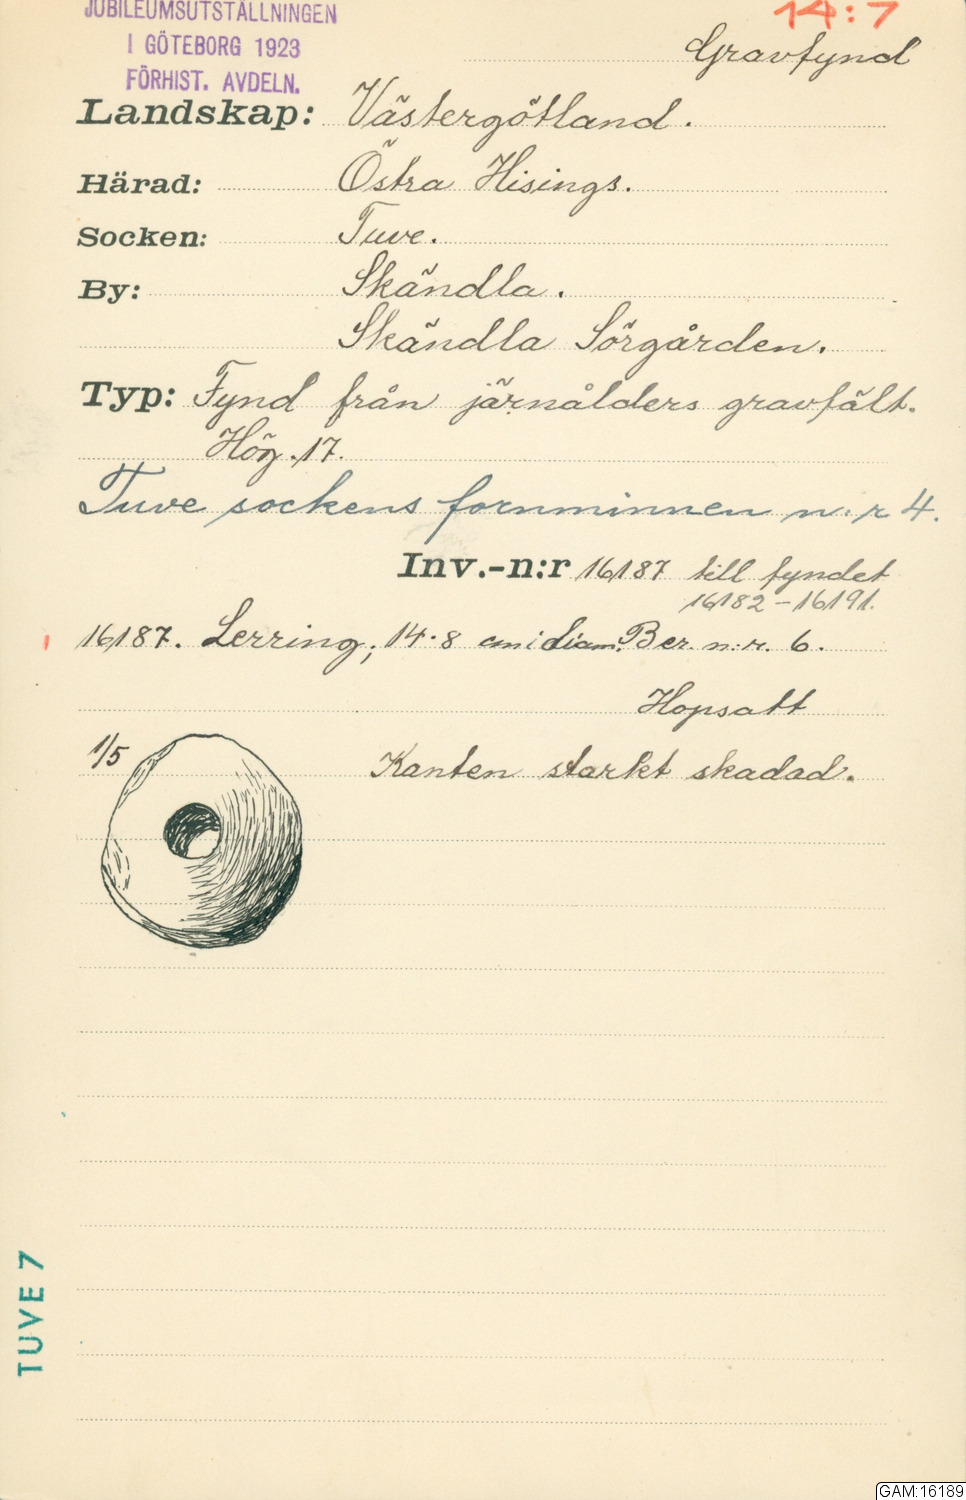 JUBILEUMSUTSTÄLLNINGEN
I GÖTEBORG 1923
FÖRHIST. AVDELN.
14:7
Gravfynd
Landskap: Västergötland.
Härad: Östra Hisings.
Socken: Tuve.
By: Skändla.
Skändla Sörgården.
Typ: Fynd från järnålders gravfält.
Hög. 17.
Tuve sockens fornminnen n:r 4.
Inv.-n:r 16187 till fyndet
16182-16191.
16187. Lerring; 14.8 cm i diam. Ber. n:r. 6.
Hopsatt
1/5
Kanten starkt skadad.
TUVE 7
GAM:16189